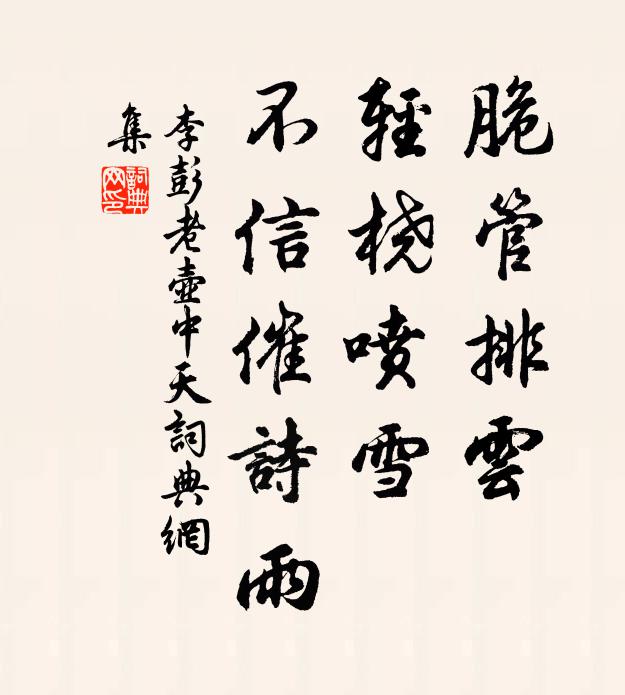 脆管排雲
輕橈噴雪
不信催詩雨
李彭老壺中天詞典網
集
詞典網印